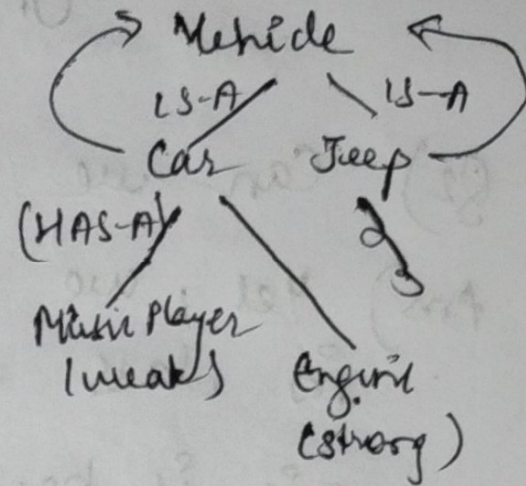 Vehicle
IS-A IS-A
Car Jeep
(HAS-A)
Music Player
(weak)
Engine
(strong)